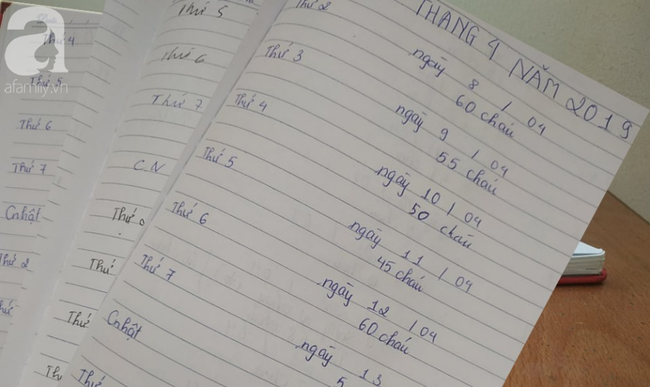 a
afamily.vn
Thứ 4
Thứ 5
Thứ 6
Thứ 7
Cnhật
Thứ 2
Thứ 5
Thứ 6
Thứ 7
C.N
Thứ
Thứ
Thứ
THÁNG 4 NĂM 2019
Thứ 2
ngày 8 / 04
60 cháu
Thứ 3
ngày 9 / 04
55 cháu
Thứ 4
ngày 10 / 04
50 cháu
Thứ 5
ngày 11 / 04
45 cháu
Thứ 6
ngày 12 / 04
60 cháu
Thứ 7
ngày 13
5
Cnhật
Thứ